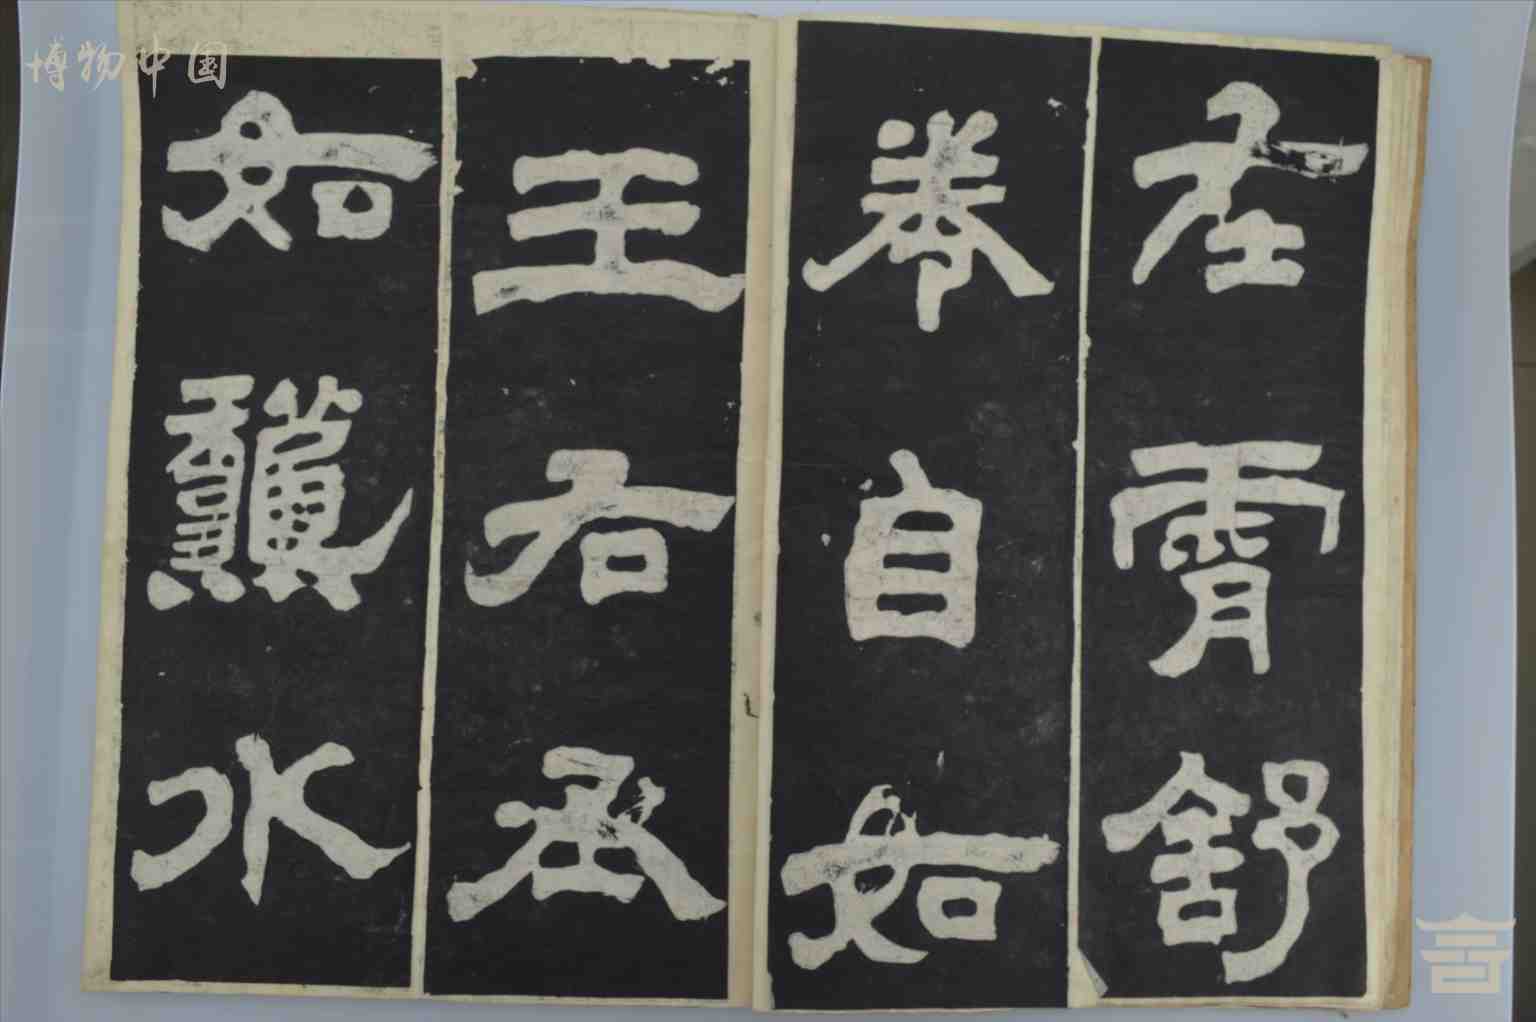 博物中国
在霄舒
卷自如
王右丞
如龝水